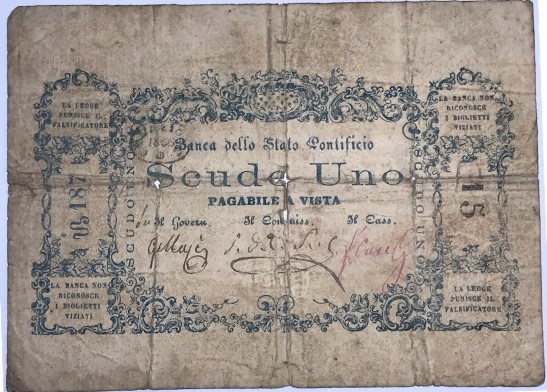 LA LEGGE
PUNISCE IL
FALSIFICATORE
LA BANCA NON
RICONOSCE
I BIGLIETTI
VIZIATI
Banca dello Stato Pontificio
Scudo Uno
PAGABILE A VISTA
Il Govern.
Il Commiss.
Il Cass.
SCUDO UNO
187
SCUDO UNO
15
LA BANCA NON
RICONOSCE
I BIGLIETTI
VIZIATI
LA LEGGE
PUNISCE IL
FALSIFICATORE